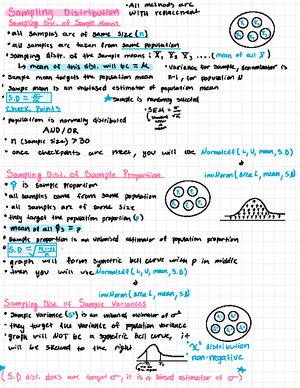 Sampling Distribution
* All methods are with replacement
Sampling Dist. of Sample Means
• all samples are of same size (n)
• all samples are taken from same population
• sampling distr. of the sample means: x̄₁ x̄₂ x̄₃ .... (mean of all x̄)
↳ mean of this dist. will be = μ
• variance for sample, denominator is n-1, for population N
• sample mean targets the population mean
• sample mean is an unbiased estimator of population mean
• S.D = σ/√n
* sample is randomly selected
Check Points
• SEM = σ/√n
• population is normally distributed
AND/OR
• n (sample size) > 30
• once checkpoints are meet, you will use Normalcdf (L, U, mean, S.D)
invNorm (area L, mean, SD)
Sampling Dist. of Sample Proportion
• p̂ is sample proportion
• all samples come from same population
• all samples are of same size
• they target the population proportion (p)
• mean of all p̂s = p
• sample proportion is an unbiased estimator of population proportion
• S.D =
• graph will form symetric bell curve with p in middle
• then you will use Normalcdf (L, U, mean, S.D)
invNorm (area L, mean, SD)
Sampling Dist. of Sample Variances
• Sample Variance (s²) is an unbiased estimator of σ²
• they target the variance of population variance
• graph will NOT be a symetric bell curve, it will be skewed to the right
* x² distribution
non-negative
* (S.D disc. does not target σ, it is a biased estimator of σ)